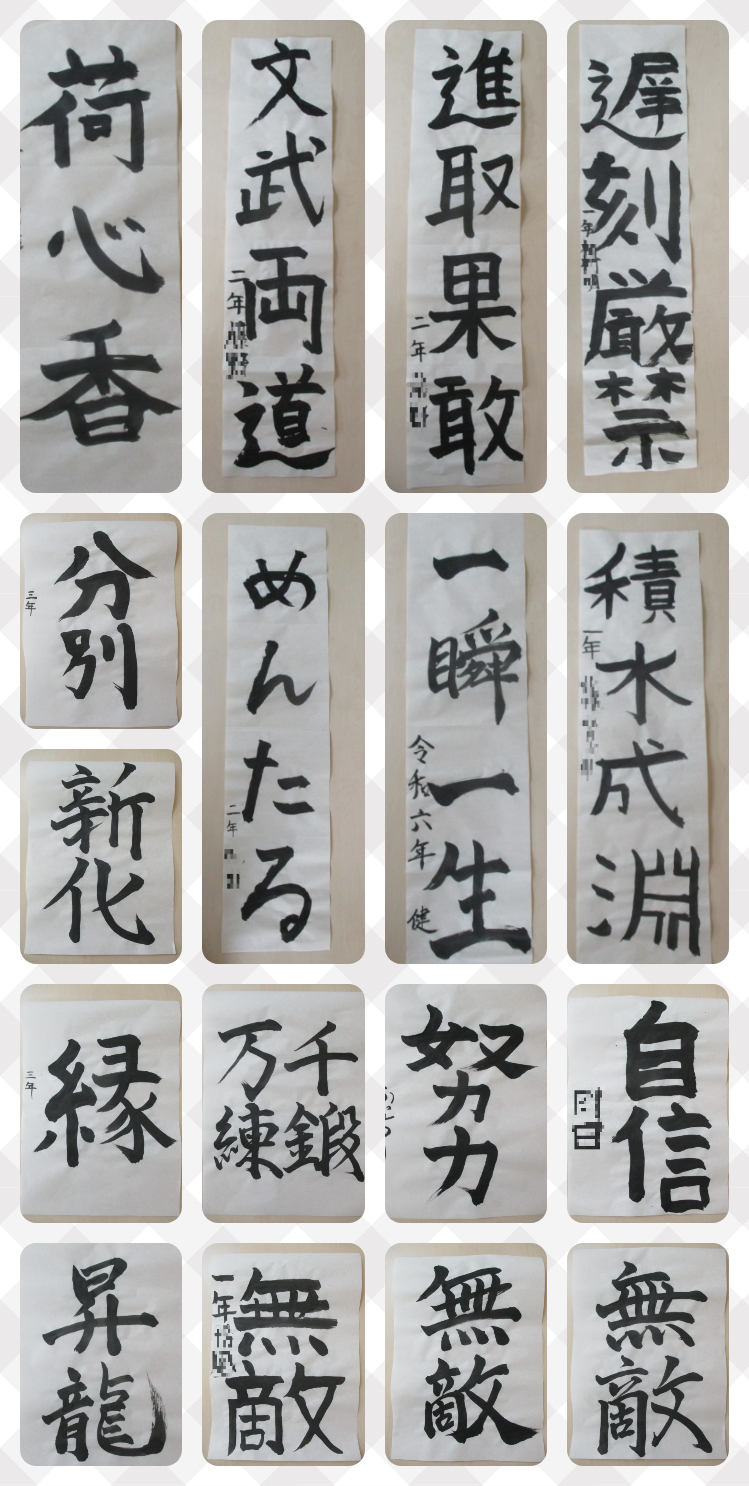 荷心香
文武両道
二年
進取果敢
二年
遅刻厳禁
一年
分別
三年
新化
めんたる
二年
一瞬一生
令和六年 健
積水成淵
一年
縁
三年
千鍛
万練
努力
自信
昇龍
無敵
一年
無敵
無敵